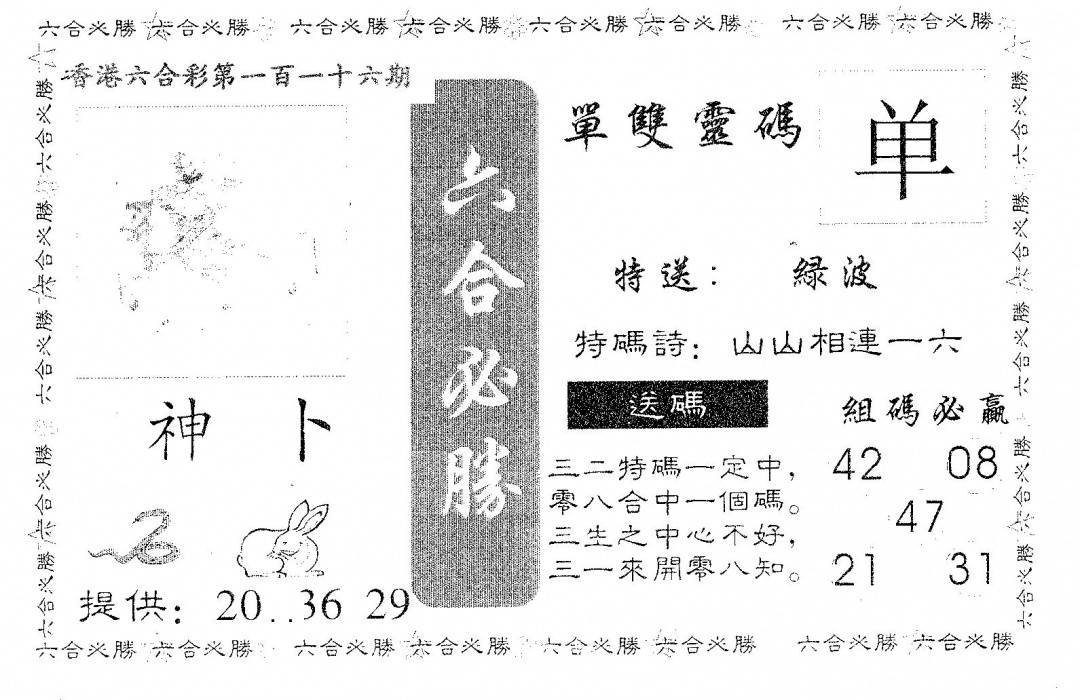 六合必勝 六合必勝 六合必勝 六合必勝 六合必勝 六合必勝 六合必勝 六合必勝
香港六合彩第一百一十六期
神 卜
提供：20..36 29
六合必勝
單雙靈碼
单
特送：綠波
特碼詩：山山相連一六
送碼
三二特碼一定中，
零八合中一個碼。
三生之中心不好，
三一來開零八知。
組碼必贏
42 08
47
21 31
六合必勝 六合必勝 六合必勝 六合必勝 六合必勝
六合必勝 六合必勝 六合必勝 六合必勝 六合必勝
六合必勝 六合必勝 六合必勝 六合必勝 六合必勝 六合必勝 六合必勝 六合必勝